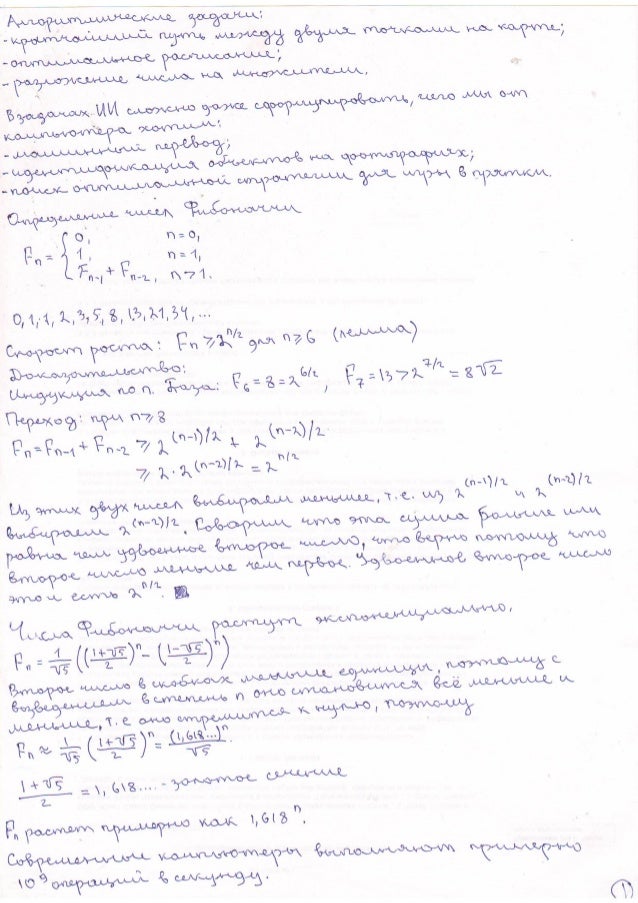 Алгоритмические задачи:
-кратчайший путь между двумя точками на карте;
-оптимальное расписание;
-разложение числа на множители.
В задачах ИИ сложно даже сформулировать, чего мы от
компьютера хотим:
-машинный перевод;
-идентификация объектов на фотографиях;
-поиск оптимальной стратегии для игры в прятки.
Определение чисел Фибоначчи
Fₙ = { 0, n=0,
1, n=1,
Fₙ₋₁ + Fₙ₋₂, n>1.
0, 1, 1, 2, 3, 5, 8, 13, 21, 34, ...
Скорост роста: Fₙ ≥ 2^(n/2) для n ≥ 6 (лемма)
Доказательство:
Индукция по n. База: F₆ = 8 = 2^(6/2), F₇ = 13 > 2^(7/2) = 8√2
Переход: при n ≥ 8
Fₙ = Fₙ₋₁ + Fₙ₋₂ ≥ 2^((n-1)/2) + 2^((n-2)/2) ≥
≥ 2·2^((n-2)/2) = 2^(n/2)
Из этих двух чисел выбираем меньшее, т.е. из 2^((n-1)/2) и 2^((n-2)/2)
выбираем 2^((n-2)/2). Говорим что эта сумма больше или
равна чем удвоенное второе число, что верно потому что
второе число меньше чем первое. Удвоенное второе число
это и есть 2^(n/2).
Числа Фибоначчи растут экспоненциально.
Fₙ = 1/√5 (((1+√5)/2)^n - ((1-√5)/2)^n)
Второе число в скобках меньше единицы, поэтому с
возведением в степень n оно становится всё меньше и
меньше, т.е оно стремится к нулю, поэтому
Fₙ ≈ 1/√5 ((1+√5)/2)^n = (1,618...)^n/√5.
(1+√5)/2 = 1,618.... - золотое сечение
Fₙ растет примерно как 1,618^n.
Современные компьютеры выполняют примерно
10^9 операций в секунду.
1